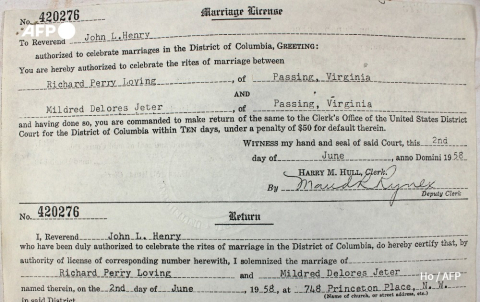 Marriage License
No. 420276
AFP
To Reverend John L. Henry
authorized to celebrate marriages in the District of Columbia, GREETING:
You are hereby authorized to celebrate the rites of marriage between
Richard Perry Loving, of Passing, Virginia
AND
Mildred Delores Jeter, of Passing, Virginia
and having done so, you are commanded to make return of the same to the Clerk's Office of the United States District
Court for the District of Columbia within TEN days, under a penalty of $50 for default therein.
WITNESS my hand and seal of said Court, this 2nd
day of June, anno Domini 1958
HARRY M. HULL, Clerk.
By
Deputy Clerk
No. 420276
Return
I, Reverend John L. Henry
who have been duly authorized to celebrate the rites of marriage in the District of Columbia, do hereby certify that, by
authority of license of corresponding number herewith, I solemnized the marriage of
Richard Perry Loving and Mildred Delores Jeter
named therein, on the 2nd day of June, 1958, at 748 Princeton Place, N. W.
(Name of church, or street address, etc.)
in said District.
Ho / AFP